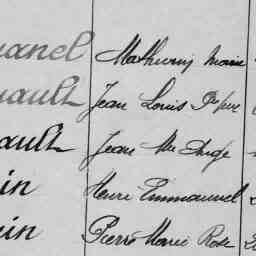 uanel Mathurin Marie
uault Jean Louis Pierre
ault Jean Me Ange
in Henri Emmanuel
uin Pierre Marie Rose